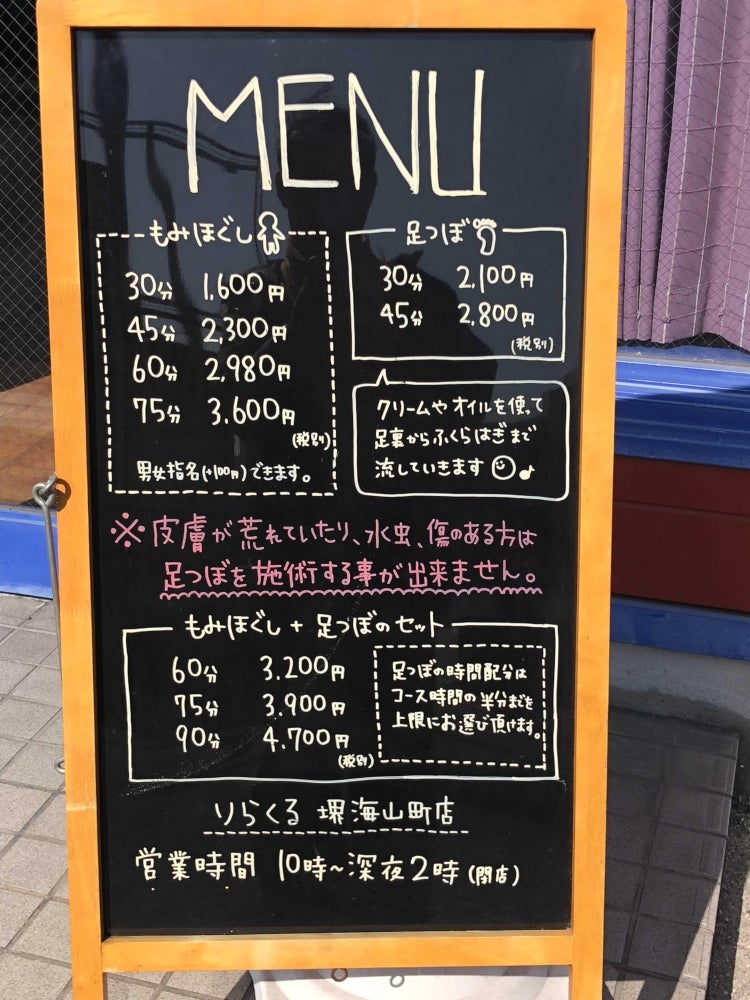 MENU
もみほぐし
30分 1,600円
45分 2,300円
60分 2,980円
75分 3,600円
(税別)
男女指名(+100円)できます。
足つぼ
30分 2,100円
45分 2,800円
(税別)
クリームやオイルを使って
足裏からふくらはぎまで
流していきます
※皮膚が荒れていたり、水虫、傷のある方は
足つぼを施術する事が出来ません。
もみほぐし+足つぼのセット
60分 3.200円
75分 3.900円
90分 4.700円
(税別)
足つぼの時間配分は
コース時間の半分までを
上限にお選び頂けます。
りらくる 堺海山町店
営業時間 10時~深夜2時(閉店)